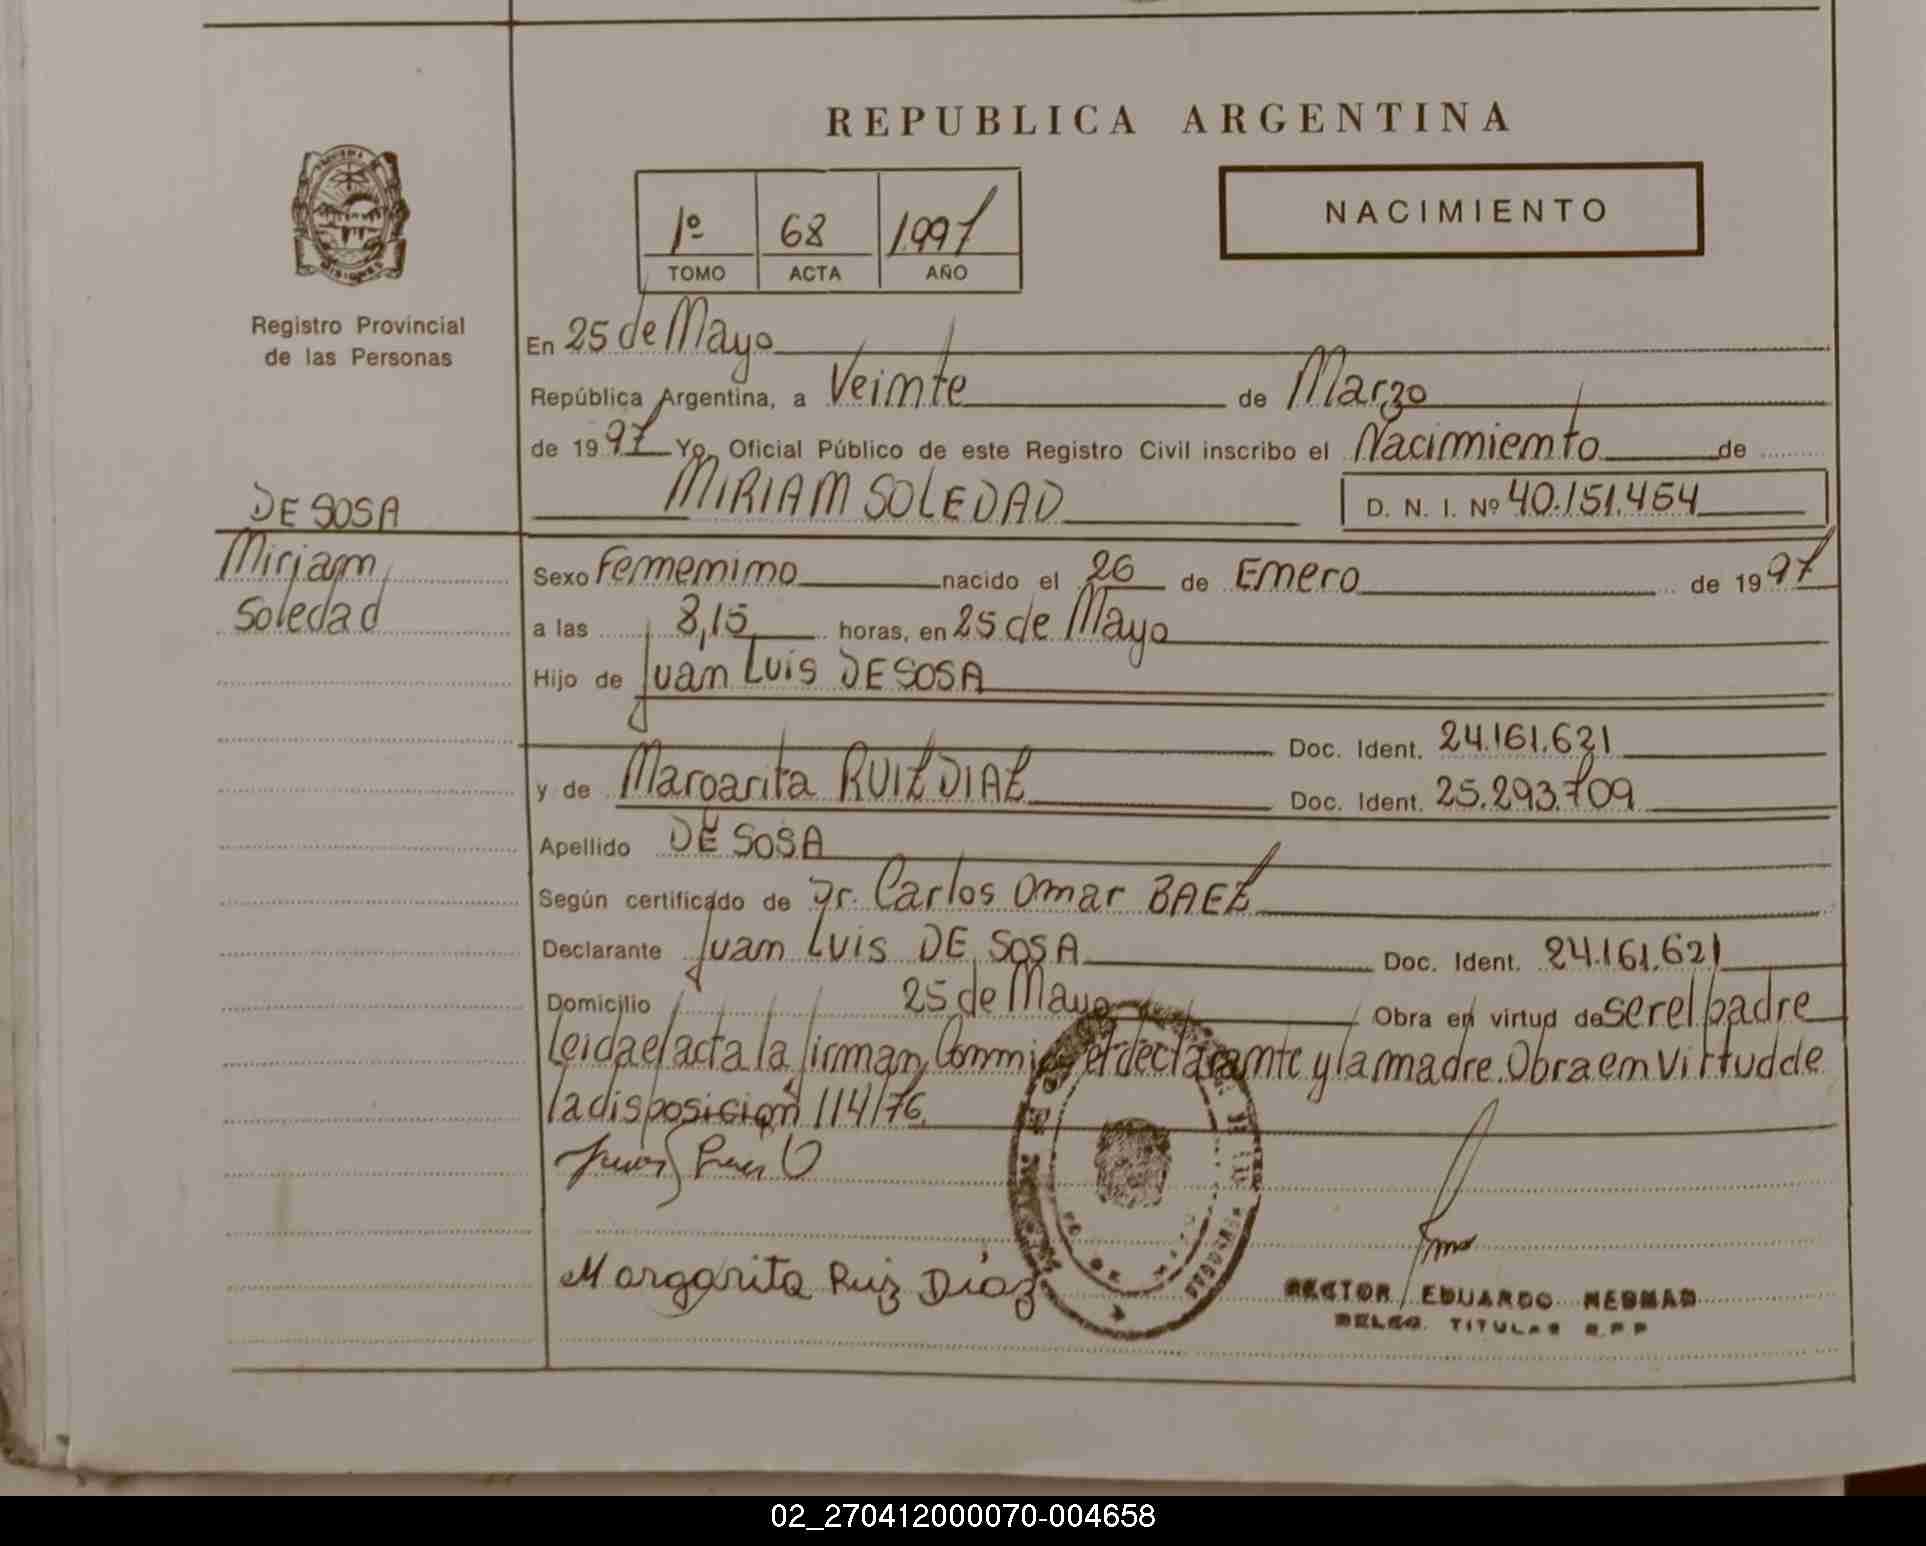 REPUBLICA ARGENTINA
NACIMIENTO
1º 68 1997
TOMO ACTA AÑO
Registro Provincial
de las Personas
En 25 de Mayo
República Argentina, a Veinte de Marzo
de 1997 Yo, Oficial Público de este Registro Civil inscribo el Nacimiento de
MIRIAM SOLEDAD D. N. I. Nº 40.151.454
DE SOSA
Miriam
Soledad
Sexo Femenino nacido el 26 de Enero de 1997
a las 8,15 horas, en 25 de Mayo
Hijo de Juan Luis DE SOSA
Doc. Ident. 24.161.621
y de Margarita RUIZ DIAZ Doc. Ident. 25.293.709
Apellido DE SOSA
Según certificado de Dr. Carlos Omar BAEZ
Declarante Juan Luis DE SOSA Doc. Ident. 24.161.621
Domicilio 25 de Mayo Obra en virtud de ser el padre
Leida el acta la firman Conmigo el declarante y la madre. Obra en virtud de
la disposición 114/76.
Margarita Ruiz Díaz
HECTOR EDUARDO NEDMAD
DELEG. TITULAR R.P.P
02_270412000070-004658